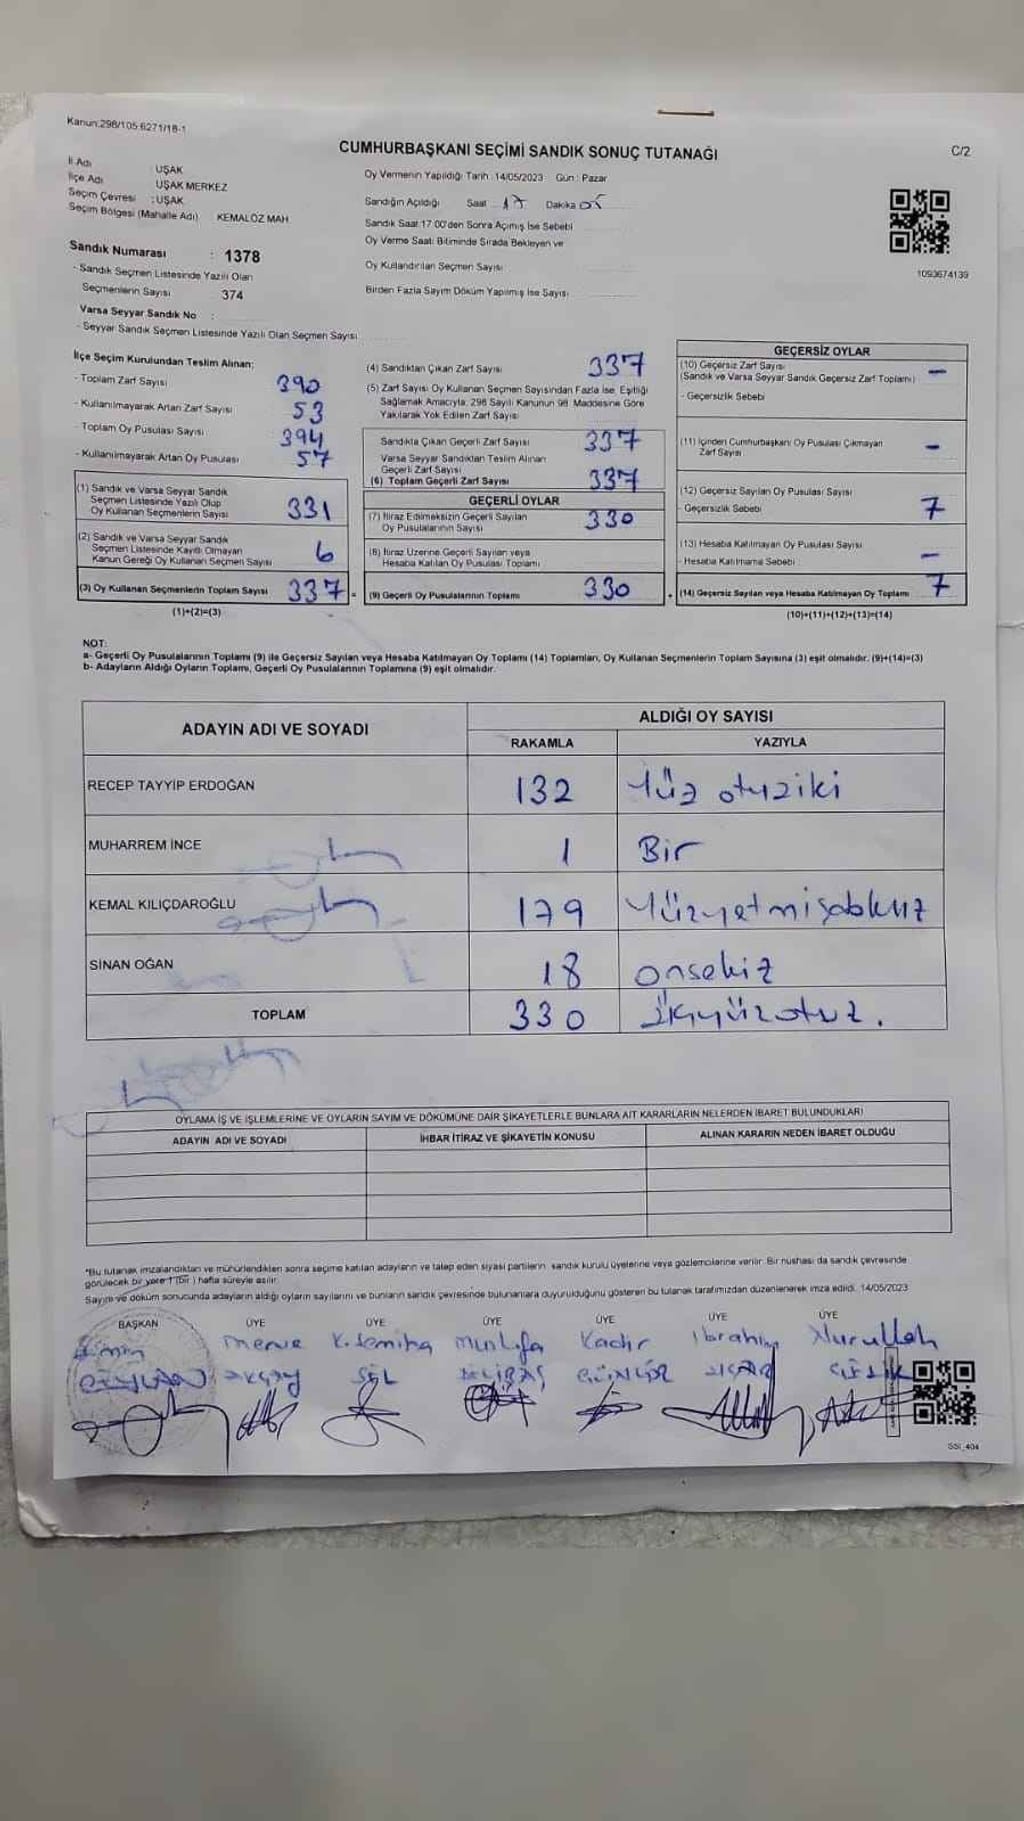 Kanun:298/105 6271/18-1
CUMHURBAŞKANI SEÇİMİ SANDIK SONUÇ TUTANAĞI
C/2
İl Adı : UŞAK
İlçe Adı : UŞAK MERKEZ
Seçim Çevresi : UŞAK
Seçim Bölgesi (Mahalle Adı) : KEMALÖZ MAH
Oy Vermenin Yapıldığı Tarih : 14/05/2023 Gün : Pazar
Sandığın Açıldığı Saat 17 Dakika 05
Sandık Saat 17:00'den Sonra Açılmış İse Sebebi
Oy Verme Saati Bitiminde Sırada Bekleyen ve
Oy Kullandırılan Seçmen Sayısı
Birden Fazla Sayım Döküm Yapılmış İse Sayısı
1093674139
Sandık Numarası : 1378
- Sandık Seçmen Listesinde Yazılı Olan
Seçmenlerin Sayısı 374
Varsa Seyyar Sandık No :
- Seyyar Sandık Seçmen Listesinde Yazılı Olan Seçmen Sayısı
İlçe Seçim Kurulundan Teslim Alınan:
- Toplam Zarf Sayısı 390
- Kullanılmayarak Artan Zarf Sayısı 53
- Toplam Oy Pusulası Sayısı 394
- Kullanılmayarak Artan Oy Pusulası 57
(1) Sandık ve Varsa Seyyar Sandık
Seçmen Listesinde Yazılı Olup
Oy Kullanan Seçmenlerin Sayısı 331
(2) Sandık ve Varsa Seyyar Sandık
Seçmen Listesinde Kayıtlı Olmayan
Kanun Gereği Oy Kullanan Seçmen Sayısı 6
(3) Oy Kullanan Seçmenlerin Toplam Sayısı 337 =
(1)+(2)=(3)
(4) Sandıktan Çıkan Zarf Sayısı 337
(5) Zarf Sayısı Oy Kullanan Seçmen Sayısından Fazla İse, Eşitliği
Sağlamak Amacıyla, 298 Sayılı Kanunun 98. Maddesine Göre
Yakılarak Yok Edilen Zarf Sayısı
Sandıkta Çıkan Geçerli Zarf Sayısı 337
Varsa Seyyar Sandıktan Teslim Alınan
Geçerli Zarf Sayısı
(6) Toplam Geçerli Zarf Sayısı 337
GEÇERLİ OYLAR
(7) İtiraz Edilmeksizin Geçerli Sayılan
Oy Pusulalarının Sayısı 330
(8) İtiraz Üzerine Geçerli Sayılan veya
Hesaba Katılan Oy Pusulası Toplamı
(9) Geçerli Oy Pusulalarının Toplamı 330
GEÇERSİZ OYLAR
(10) Geçersiz Zarf Sayısı –
(Sandık ve Varsa Seyyar Sandık Geçersiz Zarf Toplamı)
- Geçersizlik Sebebi
(11) İçinden Cumhurbaşkanı Oy Pusulası Çıkmayan
Zarf Sayısı –
(12) Geçersiz Sayılan Oy Pusulası Sayısı
- Geçersizlik Sebebi 7
(13) Hesaba Katılmayan Oy Pusulası Sayısı
- Hesaba Katılmama Sebebi –
(14) Geçersiz Sayılan veya Hesaba Katılmayan Oy Toplamı 7
(10)+(11)+(12)+(13)=(14)
NOT:
a- Geçerli Oy Pusulalarının Toplamı (9) ile Geçersiz Sayılan veya Hesaba Katılmayan Oy Toplamı (14) Toplamları, Oy Kullanan Seçmenlerin Toplam Sayısına (3) eşit olmalıdır. (9)+(14)=(3)
b- Adayların Aldığı Oyların Toplamı, Geçerli Oy Pusulalarının Toplamına (9) eşit olmalıdır.
ADAYIN ADI VE SOYADI ALDIĞI OY SAYISI
RAKAMLA YAZIYLA
RECEP TAYYİP ERDOĞAN 132 Yüz otuziki
MUHARREM İNCE 1 Bir
KEMAL KILIÇDAROĞLU 179
SİNAN OĞAN 18 onsekiz
TOPLAM 330
OYLAMA İŞ VE İŞLEMLERİNE VE OYLARIN SAYIM VE DÖKÜMÜNE DAİR ŞİKAYETLERLE BUNLARA AİT KARARLARIN NELERDEN İBARET BULUNDUKLARI
ADAYIN ADI VE SOYADI İHBAR İTİRAZ VE ŞİKAYETİN KONUSU ALINAN KARARIN NEDEN İBARET OLDUĞU
*Bu tutanak imzalandıktan ve mühürlendikten sonra seçime katılan adayların ve talep eden siyasi partilerin, sandık kurulu üyelerine veya gözlemcilerine verilir. Bir nüshası da sandık çevresinde
görülecek bir yere 1 (bir) hafta süreyle asılır.
Sayım ve döküm sonucunda adayların aldığı oyların sayılarını ve bunların sandık çevresinde bulunanlara duyurulduğunu gösteren bu tutanak tarafımızdan düzenlenerek imza edildi. 14/05/2023
BAŞKAN ÜYE ÜYE ÜYE ÜYE ÜYE ÜYE
Emin merve K.Semiha Mustafa Kadir İbrahim Nurullah
CEYLAN AKÇAY GÜNGÖR
SSI_404